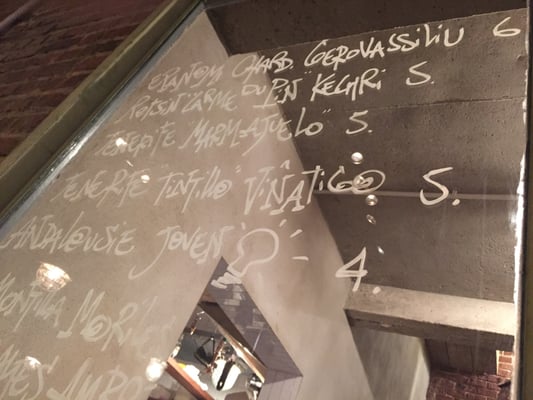 EPANOM CHARD. GEROVASSILIU 6
RETSIN "LARME DU PIN" KECHRI 5.
TENERIFE MARMAJUELO" 5.
TENERIFE "TINTILLO" VIÑATIGO 5.
ANDALOUSIE JOVEN 4.
MONTILLA MORILES